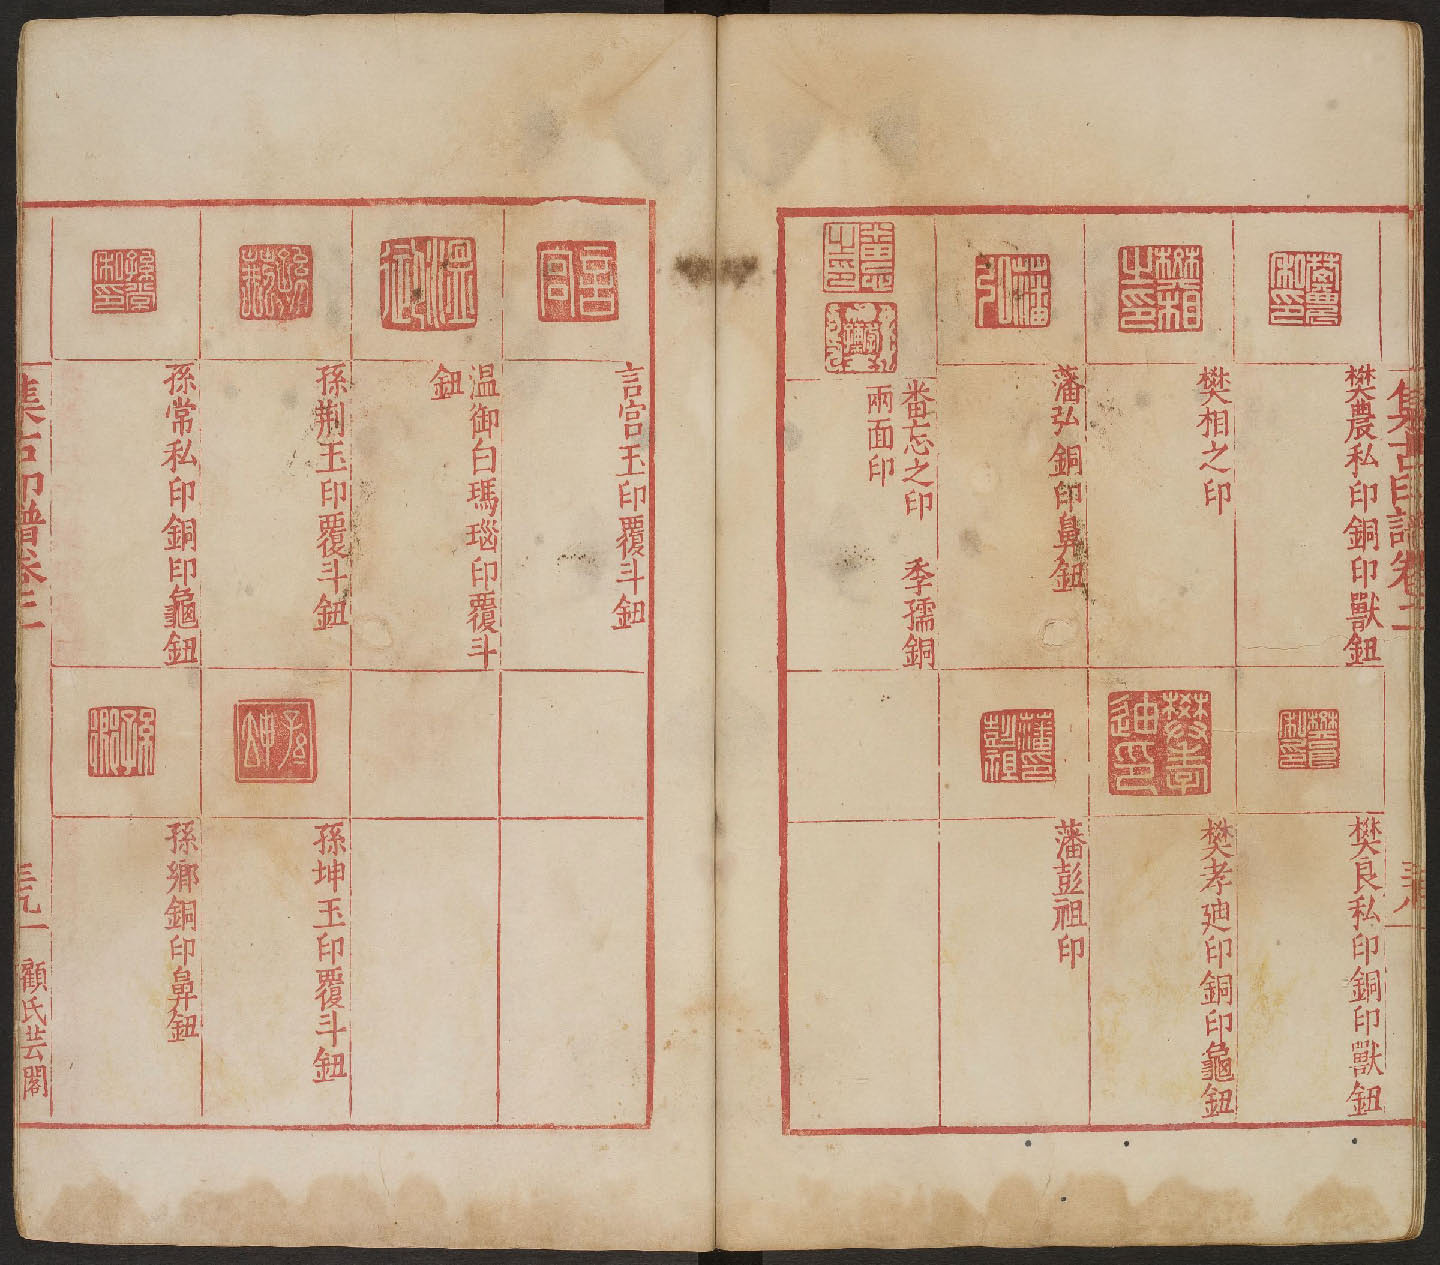 集古印譜卷二
三十八
樊農私印銅印獸鈕
樊相之印
藩弘銅印鼻鈕
番忘之印 季孺銅
兩面印
樊良私印銅印獸鈕
樊孝廸印銅印龜鈕
藩彭祖印
言宮玉印覆斗鈕
温御白瑪瑙印覆斗
鈕
孫荆玉印覆斗鈕
孫常私印銅印龜鈕
孫坤玉印覆斗鈕
孫鄉銅印鼻鈕
集古印譜卷二
三十九
顧氏芸閣